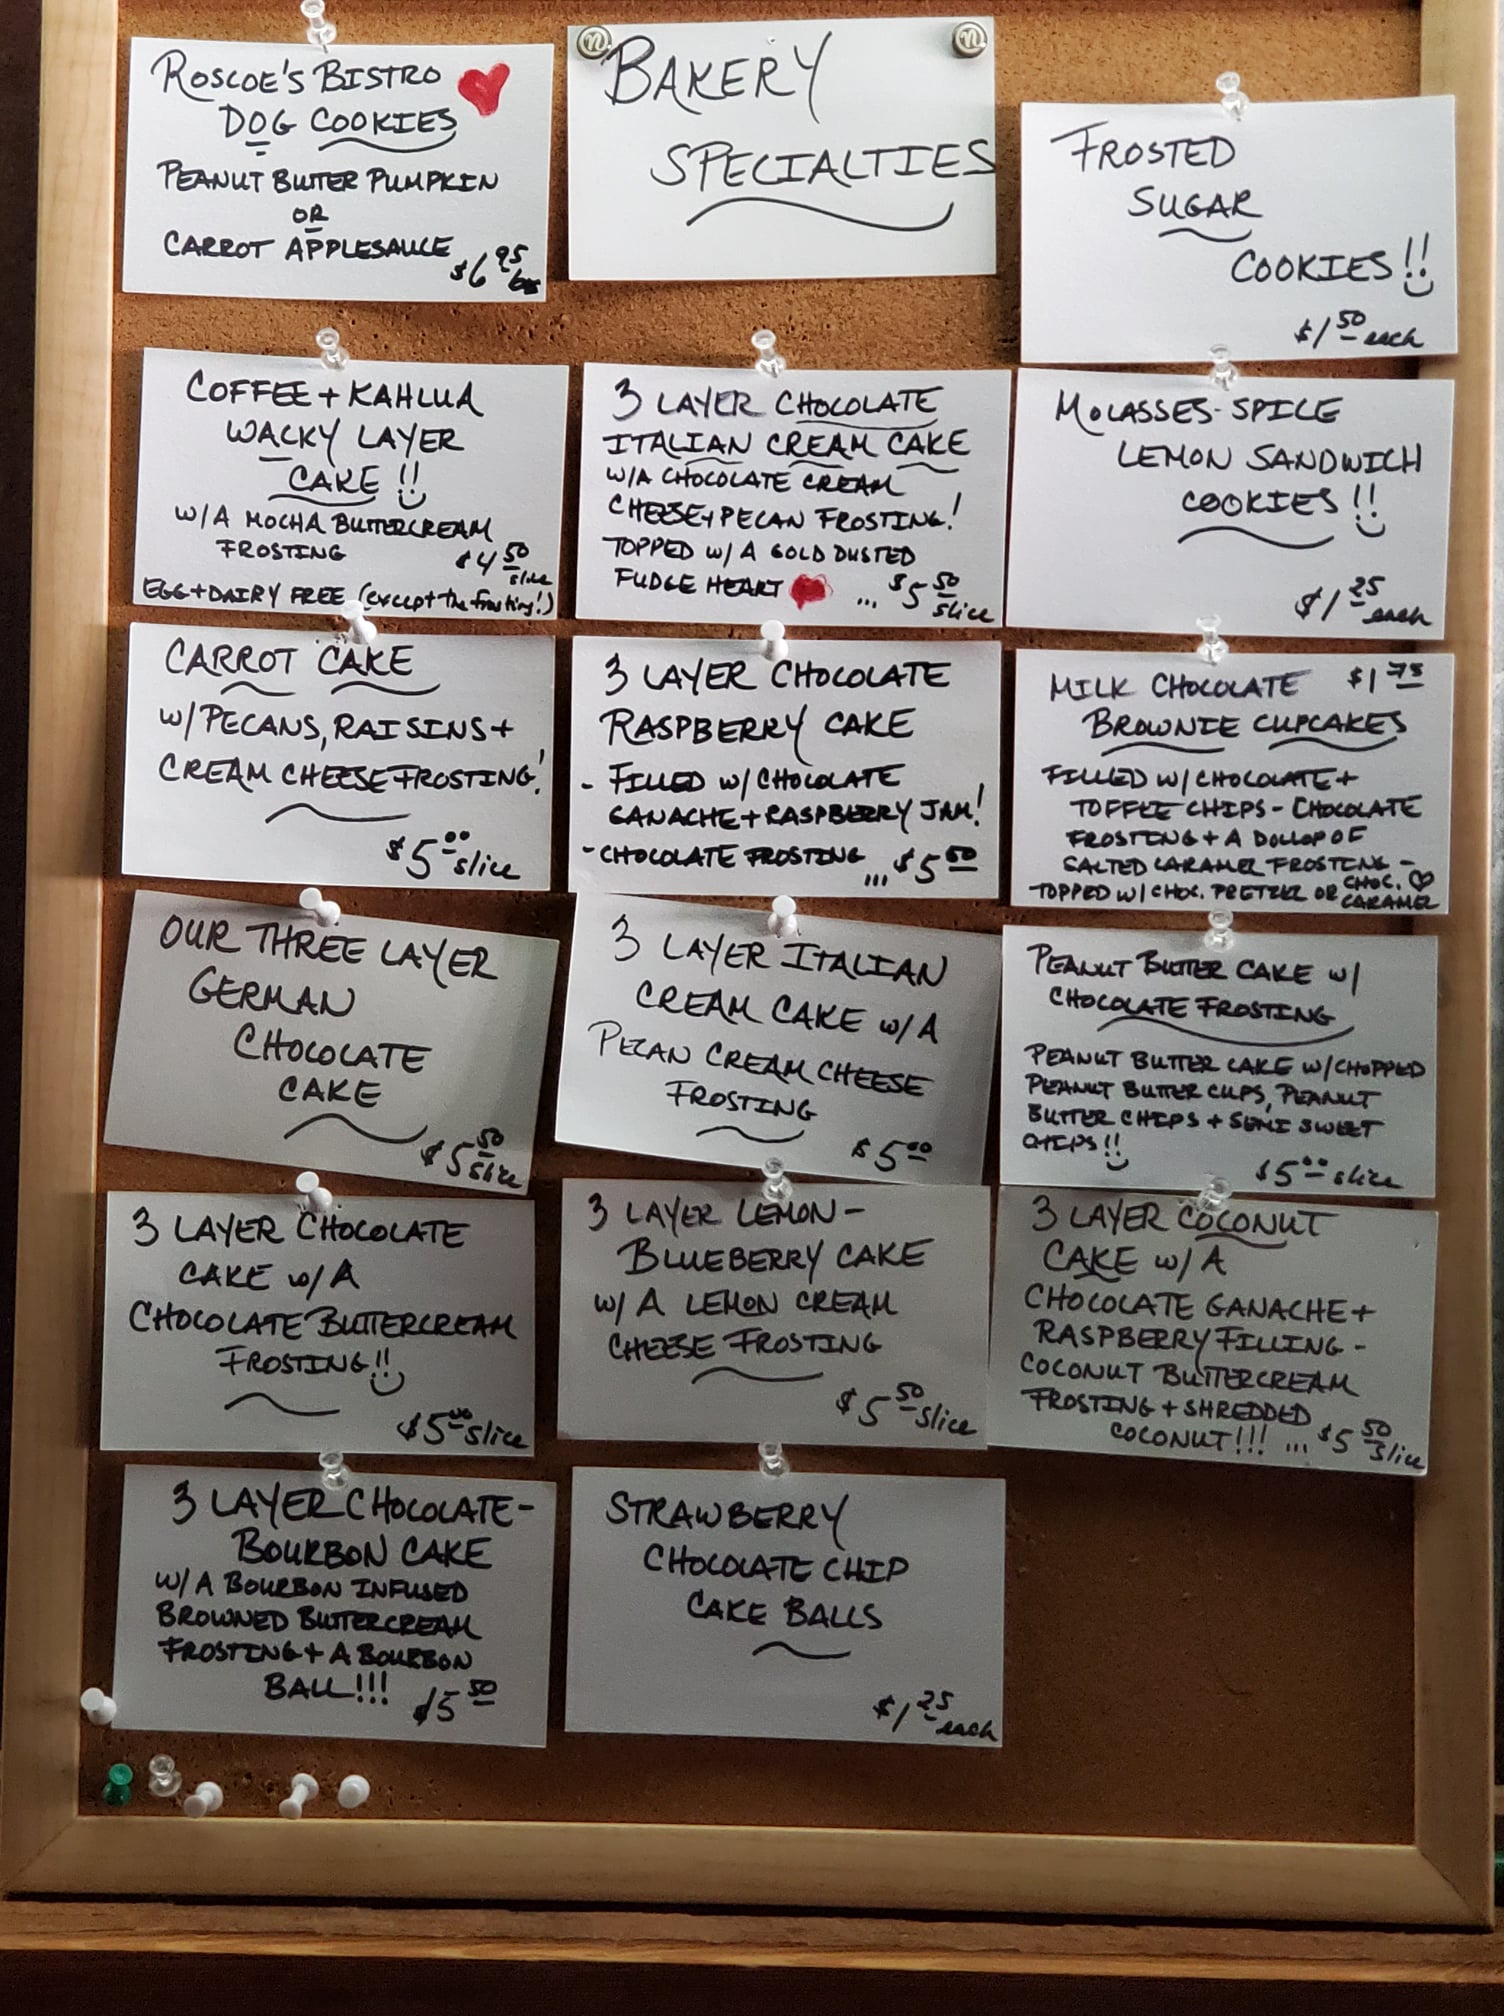 ROSCOE'S BISTRO
DOG COOKIES
PEANUT BUTTER PUMPKIN
OR
CARROT APPLESAUCE
$6 95
BAKERY
SPECIALTIES
FROSTED
SUGAR
COOKIES!!
$1 50 each
COFFEE + KAHLUA
WACKY LAYER
CAKE!!
W/A MOCHA BUTTERCREAM
FROSTING
$4 50 slice
EGG + DAIRY FREE (except the frosting!)
3 LAYER CHOCOLATE
ITALIAN CREAM CAKE
W/A CHOCOLATE CREAM
CHEESE + PECAN FROSTING!
TOPPED W/A GOLD DUSTED
FUDGE HEART ... $5 50 slice
MOLASSES-SPICE
LEMON SANDWICH
COOKIES!!
$1 25 each
CARROT CAKE
W/PECANS, RAISINS +
CREAM CHEESE FROSTING!
$5 00 slice
3 LAYER CHOCOLATE
RASPBERRY CAKE
- FILLED W/CHOCOLATE
GANACHE + RASPBERRY JAM!
- CHOCOLATE FROSTING ... $5 50
MILK CHOCOLATE $1 75
BROWNIE CUPCAKES
FILLED W/CHOCOLATE +
TOFFEE CHIPS - CHOCOLATE
FROSTING + A DOLLOP OF
SALTED CARAMEL FROSTING -
TOPPED W/CHOC. PRETZEL OR CHOC. ♡
CARAMEL
OUR THREE LAYER
GERMAN
CHOCOLATE
CAKE
$5 50 slice
3 LAYER ITALIAN
CREAM CAKE W/A
PECAN CREAM CHEESE
FROSTING
$5 00
PEANUT BUTTER CAKE W/
CHOCOLATE FROSTING
PEANUT BUTTER CAKE W/CHOPPED
PEANUT BUTTER CUPS, PEANUT
BUTTER CHIPS + SEMI SWEET
CHIPS!!
$5 00 slice
3 LAYER CHOCOLATE
CAKE W/A
CHOCOLATE BUTTERCREAM
FROSTING!!
$5 00 slice
3 LAYER LEMON-
BLUEBERRY CAKE
W/A LEMON CREAM
CHEESE FROSTING
$5 50 slice
3 LAYER COCONUT
CAKE W/A
CHOCOLATE GANACHE +
RASPBERRY FILLING -
COCONUT BUTTERCREAM
FROSTING + SHREDDED
COCONUT!!! ... $5 50 slice
3 LAYER CHOCOLATE-
BOURBON CAKE
W/A BOURBON INFUSED
BROWNED BUTTERCREAM
FROSTING + A BOURBON
BALL!!! $5 50
STRAWBERRY
CHOCOLATE CHIP
CAKE BALLS
$1 25 each